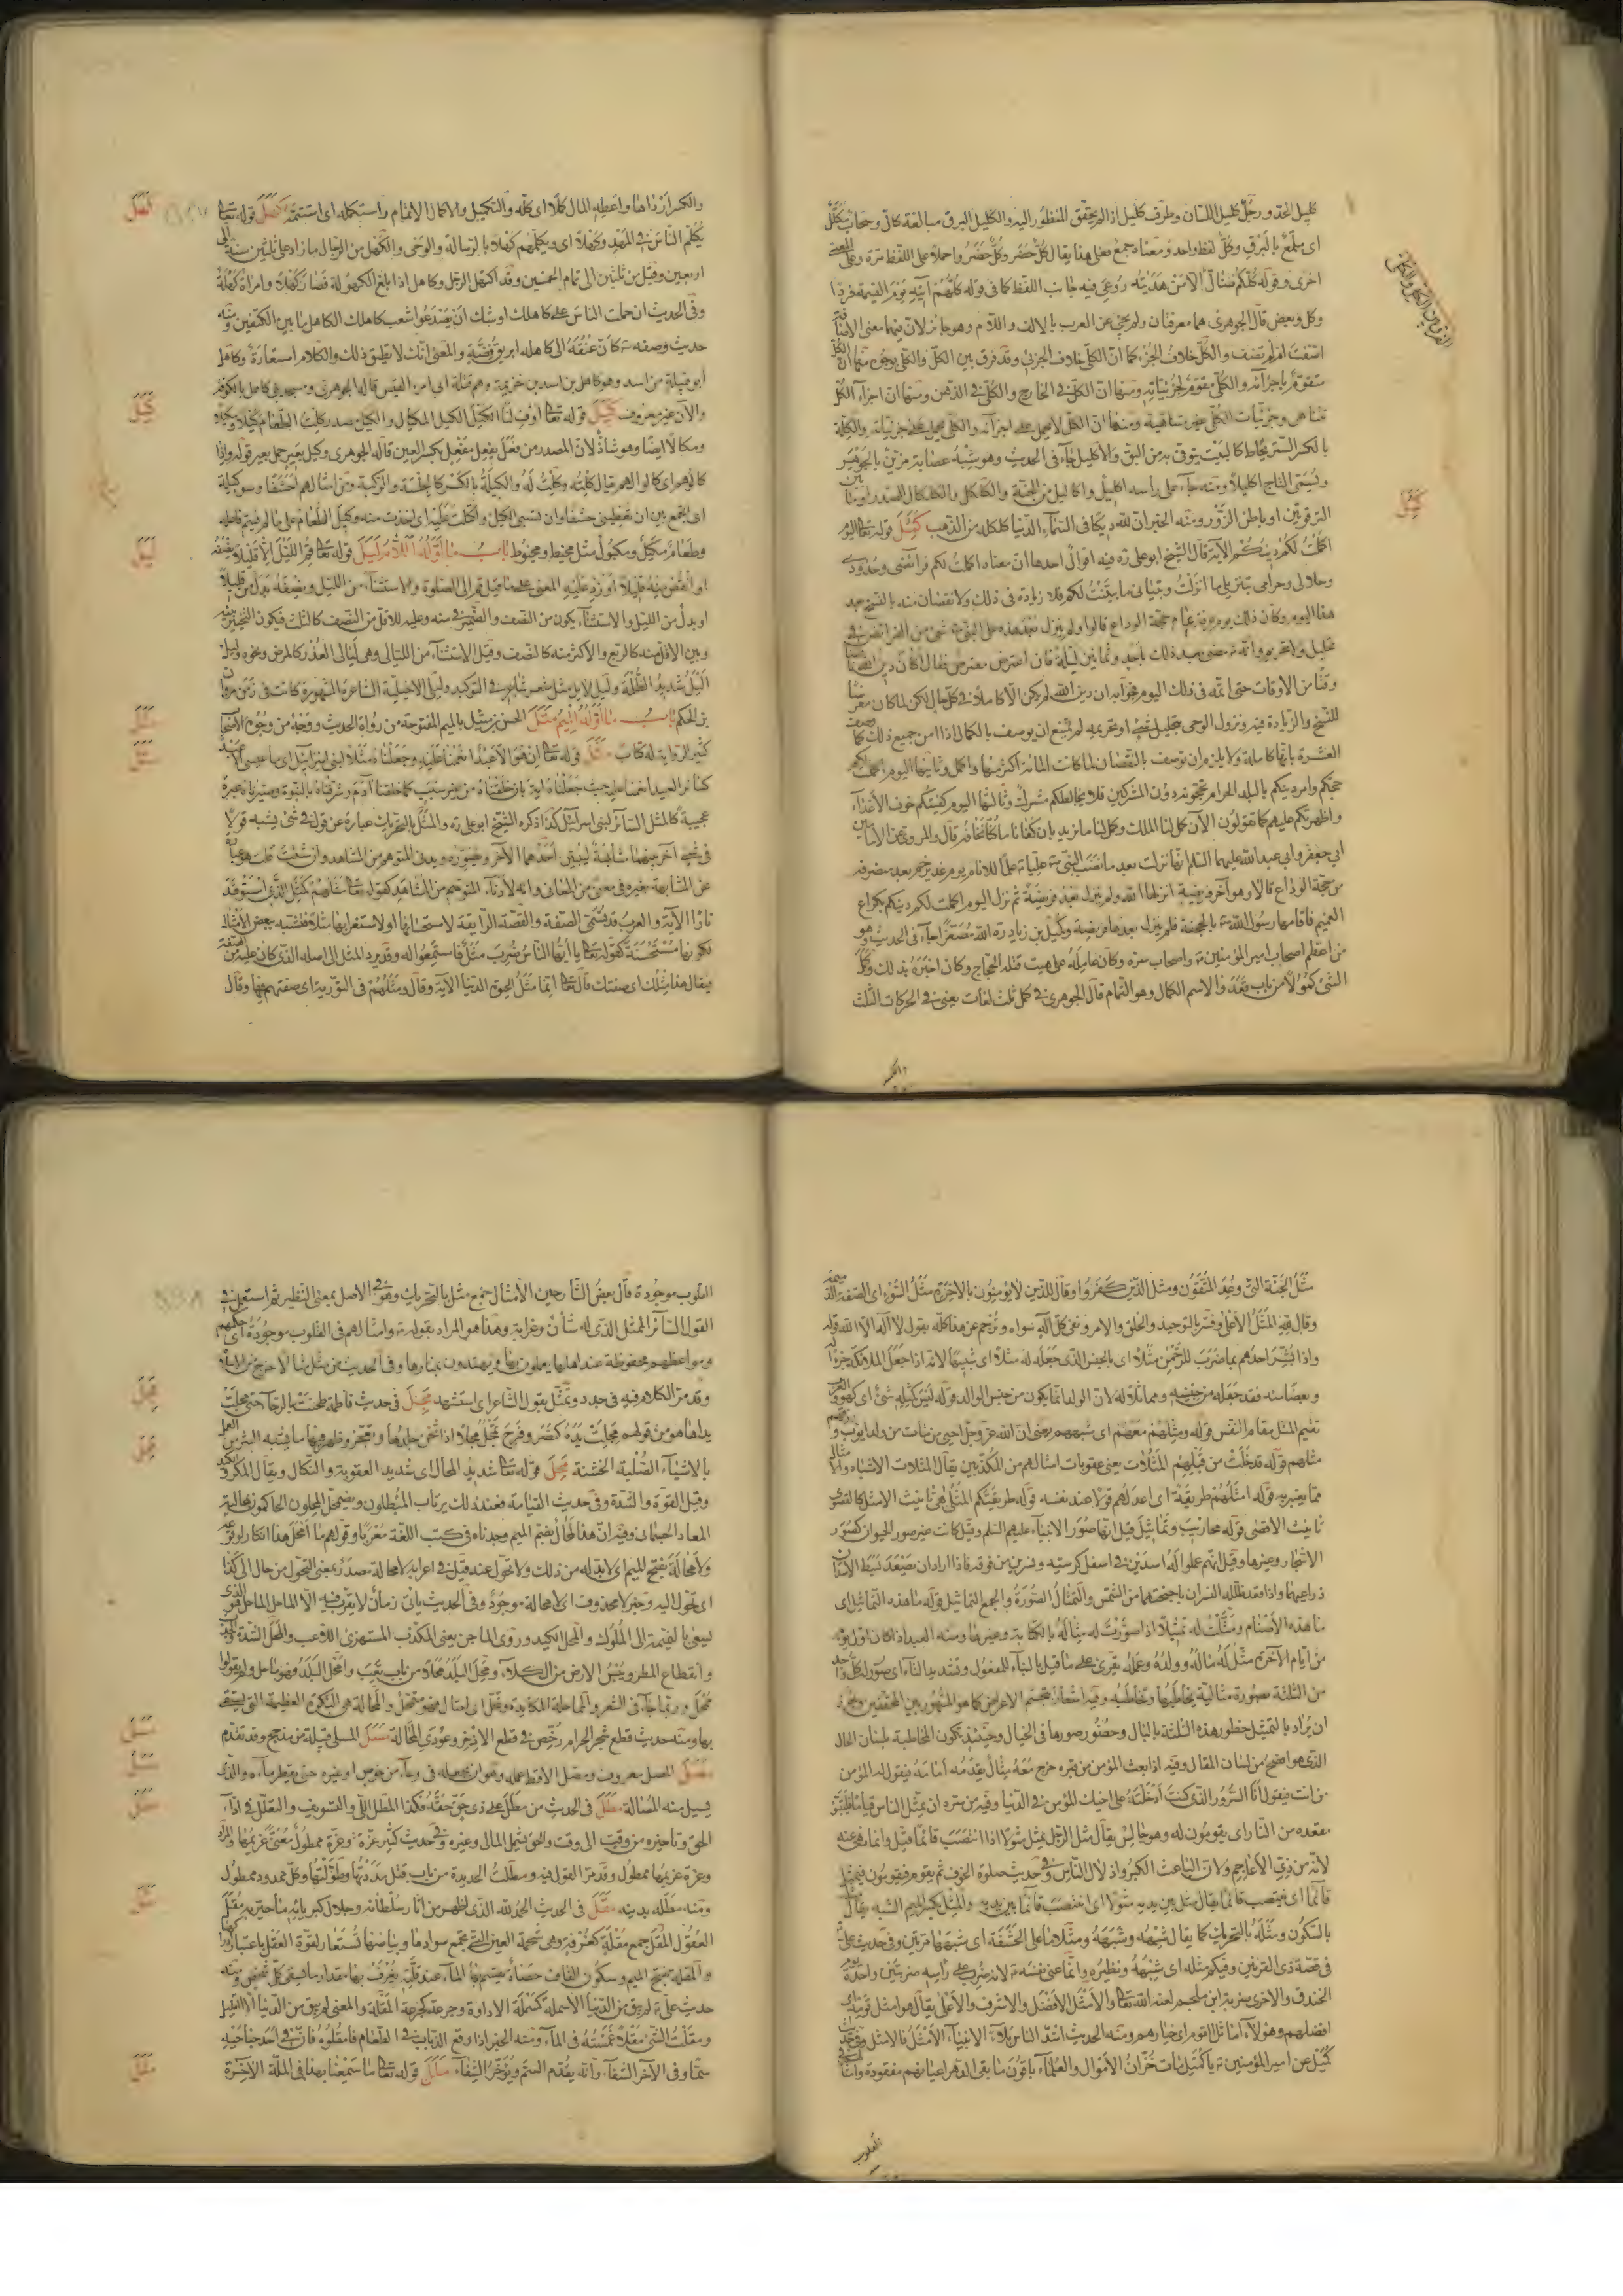 كليل الحد و رجل كليل اللسان وطرف كليل اذا لم يحقق المنظور اليه والكليل البرق مبالغة كال وسحاب مكلل
اى ملمع بالبرق وكل لفظ واحد ومعناه جمع فعلى هذا يقال كل حضر وكل حضروا حملا على اللفظ مرة وعلى المعنى
اخرى وقوله كلكم ضال الا من هديته روعى فيه جانب اللفظ كما فى قوله كلهم آتيه يوم القيمة فردا
وكل وبعض قال الجوهرى هما معرفتان ولم يجئ عن العرب بالالف واللام وهو جائز لان فيهما معنى الاضافة
اضفت او لم تضف والكل خلاف الجزء كما ان الكلى خلاف الجزئى وقد فرق بين الكل والكلى بوجوه منها ان الكل
متقوم باجزائه والكلى مقوم لجزئياته ومنها ان الكل فى الخارج والكلى فى الذهن ومنها ان اجزاء الكل
تتناهى وجزئيات الكلى غير متناهية ومنها ان الكل لا يحمل على اجزائه والكلى يحمل على جزئياته والكلة
بالكسر الستر يخاط كالبيت يتوقى به من البق والاكليل جاء فى الحديث وهو شبه عصابة مزين بالجوهر
ويسمى التاج اكليلا ومنه جاء على رأسه اكليل واكاليل من الجنة والكلكل والكلكال الصدر او ما بين
الترقوتين او باطن الزور ومنه الخبر ان لله ديكا فى السماء الدنيا كلكله من الذهب كمل قوله تعالى اليوم
اكملت لكم دينكم الآية قال الشيخ ابو على ره فيه اقوال احدها ان معناه اكملت لكم فرائضى وحدودى
وحلالى وحرامى بتنزيلى ما انزلت وتبيانى ما بينت لكم فلا زيادة فى ذلك ولا نقصان منه بالنسخ بعد
هذا اليوم وكان ذلك يوم عرفة عام حجة الوداع قالوا ولم ينزل بعد هذه على النبى شئ من الفرائض فى
تحليل ولا تحريم وانه مضى بعد ذلك باحدى وثمانين ليلة فان اعترض معترض فقال اكان دين الله ناقصا
وقتا من الاوقات حتى اتمه فى ذلك اليوم فجوابه ان دين الله لم يكن الا كاملا فى كل حال لكن لما كان معرضا
للنسخ والزيادة فيه ونزول الوحى بتحليل شئ او تحريمه لم يمتنع ان يوصف بالكمال اذا امن جميع ذلك كما توصف
العشرة بانها كاملة ولا يلزم ان توصف بالنقصان لما كانت المائة اكثر منها واكمل وثانيها اليوم اكملت لكم
حجكم وامر دينكم بالبلد الحرام تحجونه دون المشركين فلا يخالطكم مشرك وثالثها اليوم كفيتكم خوف الاعداء
واظهرتكم عليهم كما تقولون الآن كمل لنا الملك وكمل لنا ما نريد بان كفانا ما كنا نخافه قال والمروى عن الامامين
ابى جعفر وابى عبد الله عليهما السلم انها نزلت بعد ما نصب النبى عليا علما للانام يوم غدير خم بعد منصرفه
من حجة الوداع قالا وهو آخر فريضة انزلها الله ولم ينزل بعد فريضة ثم نزل اليوم اكملت لكم دينكم بكراع
الغميم فاقامها رسول الله بالجحفة فلم ينزل بعدها فريضة وكميل بن زياد ره الله مصغرا جاء فى الحديث وهو
من اعظم اصحاب امير المؤمنين واصحاب سره وكان عامله على هيت قتله الحجاج وكان اخبره بذلك وكمل
الشئ كمولا من باب قعد والاسم الكمال وهو التمام قال الجوهرى فى كمل ثلث لغات يعنى فى الحركات الثلث
والكسر
الفرق بين الكل والكلى
كمل
والكسر ارذاها واعطه المال كملا اى كله والتكميل والاكمال الاتمام واستكمله اى استتمه كهل قوله تعالى
يكلم الناس فى المهد وكهلا اى ويكلمهم كهلا بالرسالة والوحى والكهل من الرجال ما زاد على ثلثين سنة الى
اربعين وقيل من ثلثين الى تمام الخمسين وقد اكتهل الرجل وكاهل اذا بلغ الكهولة فصار كهلا وامرأة كهلة
وفى الحديث ان حملت الناس على كاهلك اوشك ان يصدعوا شعب كاهلك الكاهل ما بين الكتفين ومنه
حديث وصفه كان عنقه الى كاهله ابريق فضة والمعنى انك لا تطيق ذلك والكلام استعارة وكاهل
ابو قبيلة من اسد وهو كاهل بن اسد بن خزيمة وهم قتلة ابى امرء القيس قاله الجوهرى ومسجد بنى كاهل بالكوفة
والآن غير معروف كيل قوله تعالى اوف لنا الكيل الكيل المكيال والكيل مصدر كلت الطعام كيلا ومكيلا
ومكالا ايضا وهو شاذ لان المصدر من فعل يفعل مفعل بكسر العين قاله الجوهرى وكيل بعير حمل بعير قوله واذا
كالوهم اى كالوا لهم يقال كلته وكلت له والكيلة بالكسر كالجلسة والركبة ومن امثالهم احشفا وسوء كيلة
اى اتجمع بين ان تعطينى حشفا وان تسئ الكيل واكتلت عليه اى اخذت منه وكيل الطعام على ما لم يسم فاعله
وطعام مكيل ومكيول مثل مخيط ومخيوط باب ما اوله اللام ليل قوله تعالى قم الليل الا قليلا نصفه
او انقص منه قليلا او زد عليه المعنى على ما قيل قم الى الصلوة والاستثناء من الليل ونصفه بدل من قليلا
او بدل من الليل والاستثناء يكون من النصف والضمير فى منه وعليه للاقل من النصف كالثلث فيكون التخيير بينه
وبين الاقل منه كالربع والاكثر منه كالنصف وقيل الاستثناء من الليالى وهى ليالى العذر كالمرض ونحوه وليل
اليل شديد الظلمة وليل لايل مثل شعر شاعر فى التوكيد وليلى الاخيلية الشاعرة المشهورة كانت فى زمن مروان
بن الحكم باب ما اوله الميم متل الحسن بن متيل بالميم المفتوحة من رواة الحديث ووجه من وجوه الاصحاب
كثير الرواية له كتاب مثل قوله تعالى ان هو الا عبد انعمنا عليه وجعلناه مثلا لبنى اسرائيل اى ما عيسى الا عبد
كسائر العبيد انعمنا عليه حيث جعلناه آية بان خلقناه من غير سبب كما خلقنا آدم وشرفناه بالنبوة وصيرناه عبرة
عجيبة كالمثل السائر لبنى اسرائيل كذا ذكره الشيخ ابو على ره والمثل بالتحريك عبارة عن قول فى شئ يشبه قولا
فى شئ آخر بينهما مشابهة ليبين احدهما الآخر ويصوره ويدنى المتوهم من المشاهد وان شئت قلت هو عبارة
عن المشابهة بغيره فى معنى من المعانى وانه لادناء المتوهم من المشاهد كقوله تعالى مثلهم كمثل الذى استوقد
نارا الآية والعرب قد تسمى الصفة والقصة الرائقة لاستحسانها او لاستغرابها مثلا فتشبه ببعض الامثال
لكونها مستحسنة كقوله تعالى يا ايها الناس ضرب مثل فاستمعوا له وقد يرد المثل الى اصله الذى كان عليه من الصفة
فيقال هذا مثلك اى صفتك قال تعالى انما مثل الحيوة الدنيا الآية وقال ومثلهم فى التورية اى صفتهم فيها وقال
كهل
كيل
ليل
متل
مثل
مثل الجنة التى وعد المتقون ومثل الذين كفروا وقال للذين لا يؤمنون بالآخرة مثل السوء اى الصفة الذميمة
وقال ولله المثل الاعلى وفسر بالتوحيد والخلق والامر ونفى كل اله سواه وترجم عن هذا كله بقول لا اله الا الله قوله
واذا بشر احدهم بما ضرب للرحمن مثلا اى بالجنس الذى جعله له مثلا اى شبيها لانه اذا جعل الملائكة جزءا له
وبعضا منه فقد جعله من جنسه ومماثلا له لان الولد انما يكون من جنس الوالد قوله ليس كمثله شئ اى كهو والعرب
تقيم المثل مقام النفس قوله ومثلهم معهم اى شبههم يعنى ان الله عز وجل احيى من مات من ولد ايوب ورزقه
مثلهم قوله قد خلت من قبلهم المثلات يعنى عقوبات امثالهم من المكذبين يقال المثلات الاشباه والامثال
مما يعتبر به قوله امثلهم طريقة اى اعدلهم قولا عند نفسه قوله طريقتكم المثلى هى تأنيث الامثل كالقصوى
تأنيث الاقصى قوله محاريب وتماثيل قيل انها صور الانبياء عليهم السلم وقيل كانت غير صور الحيوان كصور
الاشجار وغيرها وقيل انهم عملوا له اسدين فى اسفل كرسيه ونسرين من فوقه فاذا اراد ان يصعد بسط الاسدان
ذراعيهما واذا قعد ظلله النسران باجنحتهما من الشمس والتمثال الصورة والجمع التماثيل قوله ما هذه التماثيل اى
ما هذه الاصنام ومثلت له تمثيلا اذا صورت له مثاله بالكتابة وغيرها ومنه العبد اذا كان اول يوم
من ايام الآخرة مثل له ماله وولده وعمله يقرئ على ما قيل بالبناء للمفعول وتشديد الثاء اى صور له كل واحد
من الثلثة بصورة مثالية يخاطبها وتخاطبه وفيه اشعار بتجسم الاعراض كما هو المشهور بين المحققين ويجوز
ان يراد بالتمثيل خطور هذه الثلثة بالبال وحضور صورها فى الخيال وحينئذ يكون المخاطبة بلسان الحال
الذى هو افصح من لسان المقال وفيه اذا بعث المؤمن من قبره خرج معه مثال يقدمه امامه فيقول له المؤمن
من انت فيقول انا السرور الذى كنت ادخلته على اخيك المؤمن فى الدنيا وفيه من سره ان يمثل الناس قياما فليتبوء
مقعده من النار اى يقومون له وهو جالس يقال مثل الرجل يمثل مثولا اذا انتصب قائما قيل وانما نهى عنه
لانه من زى الاعاجم ولان الباعث الكبر واذلال الناس وفى حديث صلوة الخوف ثم يقوم فيقومون فيمثل
قائما اى ينتصب قائما يقال مثل بين يديه مثولا اى انتصب قائما بين يديه والمثل بكسر الميم الشبه يقال مثله
بالسكون ومثله بالتحريك كما يقال شبهه وشبهه
فى قصة ذى القرنين وفيكم مثله اى شبهه ونظيره وانما عنى نفسه لانه ضرب على رأسه ضربتين واحدة يوم
الخندق والاخرى ضربة ابن ملجم لعنه الله تعالى والامثل الافضل والاشرف والاعلى يقال هو امثل قومه اى
افضلهم وهؤلاء اماثل القوم اى خيارهم ومنه الحديث اشد الناس بلاء الانبياء الامثل فالامثل وفى حديث
كميل عن امير المؤمنين يا كميل مات خزان الاموال والعلماء باقون ما بقى الدهر اعيانهم مفقودة وامثالهم فى
القلوب
القلوب موجودة قال بعض الشارحين الامثال جمع مثل بالتحريك وهو فى الاصل بمعنى النظير ثم استعمل فى
القول السائر الممثل الذى له شأن وغرابة وهذا هو المراد بقوله وامثالهم فى القلوب موجودة اى حكمهم
ومواعظهم محفوظة عند اهلها يعملون بها ويهتدون بمنارها وفى الحديث من مثل مثالا خرج من الاسلام
وقد مر الكلام فيه فى جدد وتمثل بقول الشاعر اى استشهد مجل فى حديث فاطمة طحنت بالرحا حتى مجلت
يداها هو من قولهم مجلت يده كنصر وفرح تمجل مجلا اذا ثخن جلدها وتعجز وظهر فيها ما يشبه البثر من العمل
بالاشياء الصلبة الخشنة محل قوله تعالى شديد المحال اى شديد العقوبة والنكال ويقال المكر والكيد
وقيل القوة والشدة وفى حديث القيامة فعند ذلك يرتاب المبطلون ويضمحل المحلون الحاكمون بمحالية
المعاد الجسمانى وفيه ان هذا لمحال بضم الميم وجدناه فى كتب اللغة معربا وقولهم ما امحل هذا انكار لوقوعه
ولا محالة بفتح الميم اى لا بد له من ذلك ولا تحول عنه قيل فى اعرابه لا محالة مصدر بمعنى التحول من حال الى كذا
اى تحول اليه وخبر لا محذوف اى لا محالة موجود وفى الحديث يأتى زمان لا يقرب فيه الا الماحل الماحل هو الذى
يسعى بالنميمة الى الملوك والمحل الكيد وروى الماجن يعنى المكذب المستهزئ اللاعب والمحل الشدة والجدب
وانقطاع المطر ويبس الارض من الكلاء ومحل البلد محلا من باب تعب وامحل البلد فهو ماحل ولم يقولوا
ممحل وربما جاء فى الشعر والمماحلة المكايدة وتمحل اى احتال فهو متمحل والمحالة هى البكرة العظيمة التى يستقى
بها ومنه حديث قطع شجر الحرام رخص فى قطع الاذخر وعودى المحالة مسل المسلى قبيلة من مذحج وقد تقدم
مصل المصل معروف ومصل الاقط عمله وهو ان يجعله فى وعاء من خوص او غيره حتى يقطر ماءه والذى
يسيل منه المصالة مطل فى الحديث من مطل على ذى حق حقه فكذا المطل اللى والتسويف والتعلل فى اداء
الحق وتأخيره من وقت الى وقت والحق يشمل المالى وغيره وفى حديث كثير عزة وعزة ممطول معنى غريمها
وعزة غريمها ممطول وقد مر القول فيه ومطلت الحديدة من باب قتل مددتها وطولتها وكل ممدود ممطول
ومنه مطله بدينه مقل فى الحديث الحمد لله الذى اظهر من آثار سلطانه وجلال كبريائه ما حير به مقل
العقول المقل جمع مقلة كغرفة وهى شحمة العين التى تجمع سوادها وبياضها تستعار لقوة العقل باعتبار ادراكها
والمقلة بفتح الميم وسكون القاف حصاة يقسم بها الماء عند قلته يعرف بها مقدار ما يسقى كل شخص ومنه
حديث على لم يبق من الدنيا الا سملة كسملة الاداوة وجرعة كجرعة المقلة والمعنى لم يبق من الدنيا الا القليل
ومقلت الشئ مقلا غمسته فى الماء ومنه الخبر اذا وقع الذباب فى الطعام فامقلوه فان فى احد جناحيه
سما وفى الآخر الشفاء وانه يقدم السم ويؤخر الشفاء ملل قوله تعالى ما سمعنا بهذا فى الملة الآخرة
مجل
محل
مسل
مصل
مطل
مقل
ملل